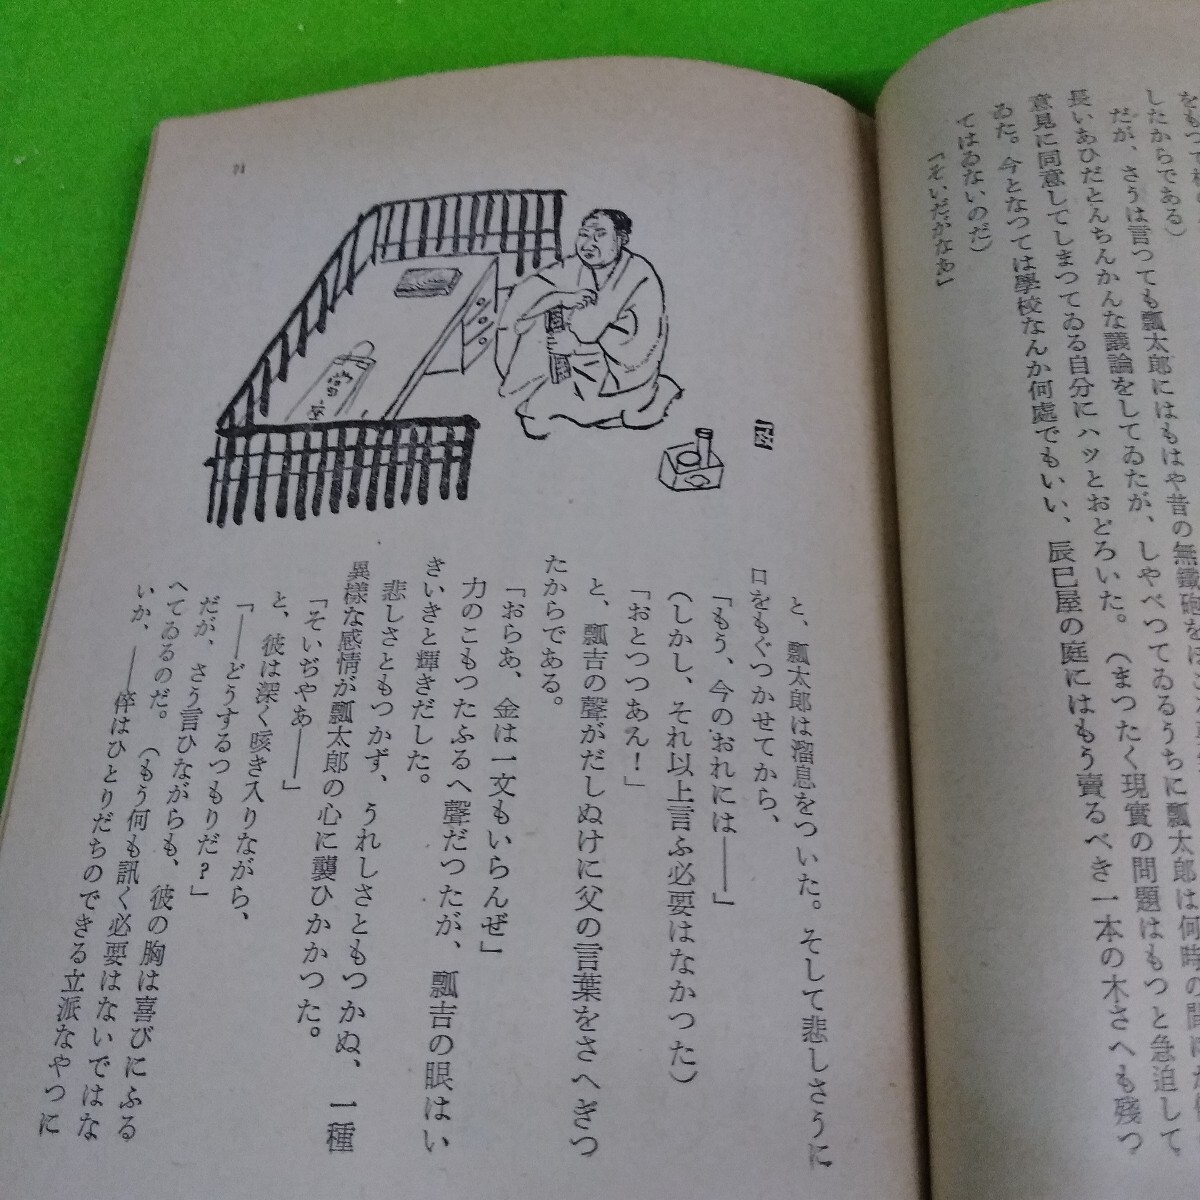 をもつて
したからである)
だが、さうは言つても瓢太郎にはもはや昔の無鐵砲な
長いあひだとんちんかんな議論をしてゐたが、しやべつてゐるうちに瓢太郎は何時の間に
意見に同意してしまつてゐる自分にハッとおどろいた。(まつたく現實の問題はもつと急迫して
ゐた。今となつては學校なんか何處でもいい、辰巳屋の庭にはもう賣るべき一本の木さへも殘つ
てはゐないのだ)
「そいだがなあ」
と、瓢太郎は溜息をついた。そして悲しさうに
口をもぐつかせてから、
「もう、今のおれには――」
(しかし、それ以上言ふ必要はなかつた)
「おとつつあん!」
と、瓢吉の聲がだしぬけに父の言葉をさへぎつ
たからである。
「おらあ、金は一文もいらんぜ」
力のこもつたふるへ聲だつたが、瓢吉の眼はい
きいきと輝きだした。
悲しさともつかず、うれしさともつかぬ、一種
異樣な感情が瓢太郎の心に襲ひかかつた。
「そいぢやあ――」
と、彼は深く咳き入りながら、
「――どうするつもりだ?」
だが、さう言ひながらも、彼の胸は喜びにふる
へてゐるのだ。(もう何も訊く必要はないではな
いか、――倅はひとりだちのできる立派なやつに